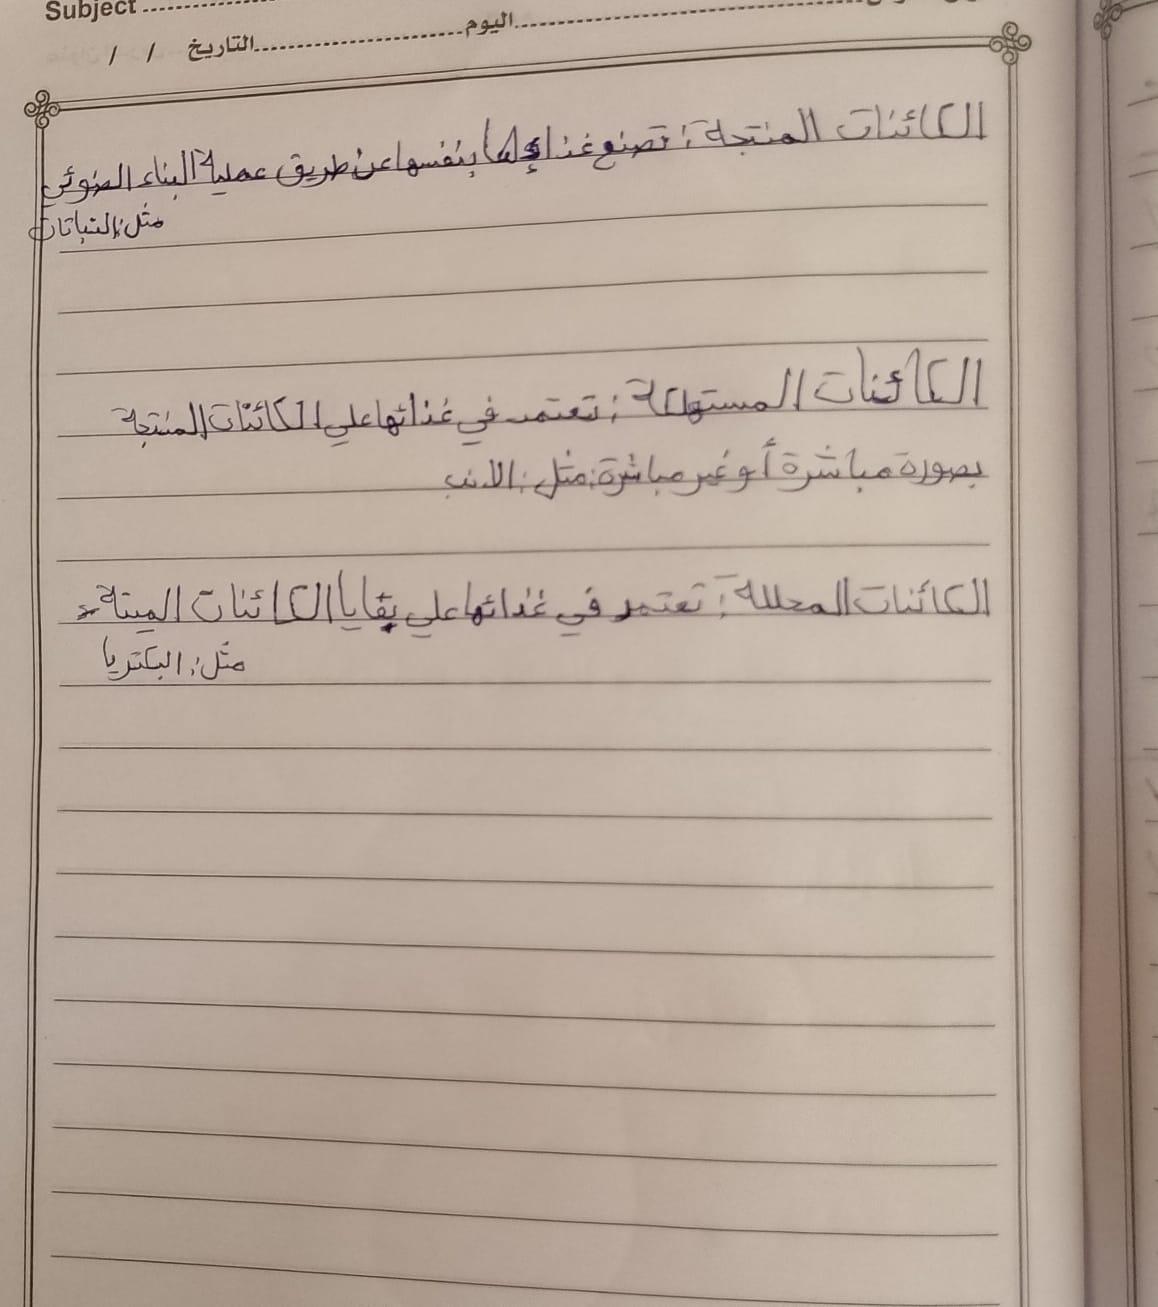 Subject
اليوم
التاريخ / /
الكائنات المنتجة: تصنع غذاءها بنفسها عن طريق عملية البناء الضوئي
مثل: النباتات
الكائنات المستهلكة: تعتمد في غذائها علي الكائنات المنتجة
بصورة مباشرة أو غير مباشرة: مثل: الارنب
الكائنات المحللة: تعتمد في غذائها علي بقايا الكائنات الميتة
مثل: البكتريا